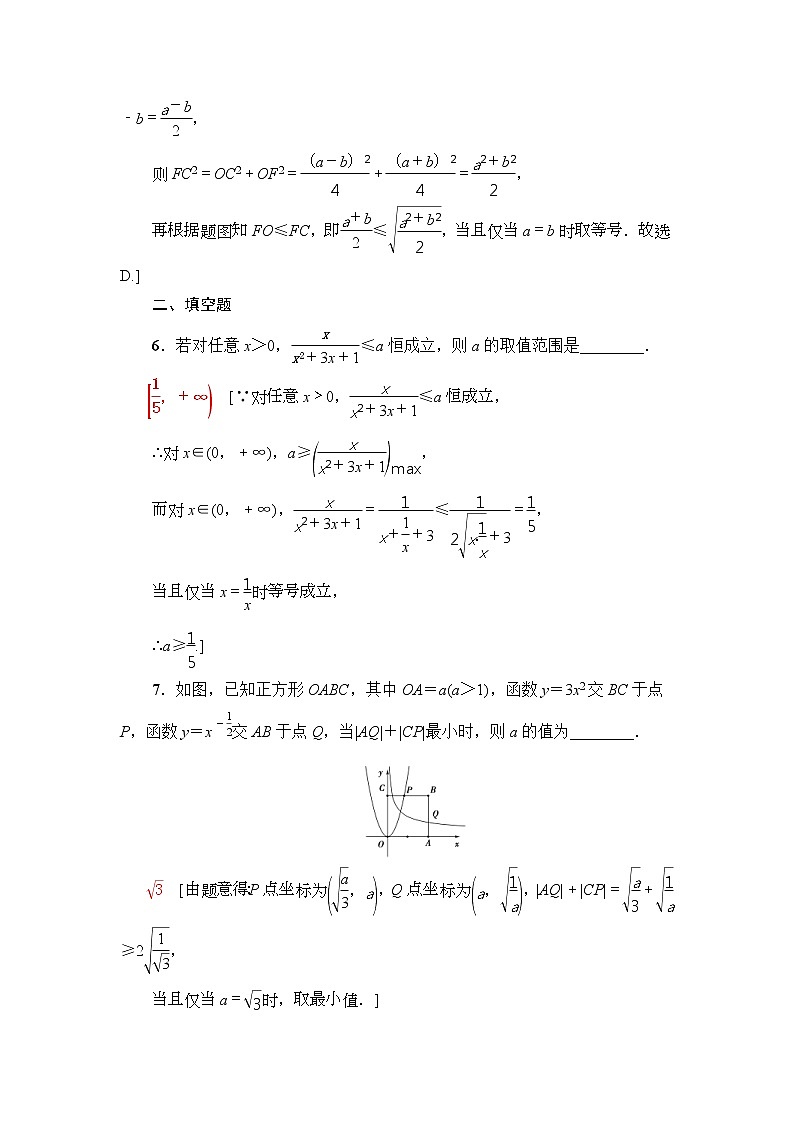 ﹣b＝\frac{a－b}{2}，
则 FC²＝OC²＋OF²＝\frac{（a－b）2}{4}＋\frac{（a＋b）2}{4}＝\frac{a2＋b2}{2}，
再根据题图知 FO≤FC，即\frac{a＋b}{2}≤\sqrt{\frac{a2＋b2}{2}}，当且仅当 a＝b 时取等号．故选
D.]
二、填空题
6．若对任意 x＞0，\frac{x}{x2＋3x＋1}≤a 恒成立，则 a 的取值范围是________．
[\frac{1}{5}，＋∞) [∵对任意 x＞0，\frac{x}{x2＋3x＋1}≤a 恒成立，
∴对 x∈(0，＋∞)，a≥(\frac{x}{x2＋3x＋1})max，
而对 x∈(0，＋∞)，\frac{x}{x2＋3x＋1}＝\frac{1}{x＋\frac{1}{x}＋3}≤\frac{1}{2\sqrt{x·\frac{1}{x}}＋3}＝\frac{1}{5}，
当且仅当 x＝\frac{1}{x}时等号成立，
∴a≥\frac{1}{5}.]
7．如图，已知正方形 OABC，其中 OA＝a(a＞1)，函数 y＝3x²交 BC 于点
P，函数 y＝x^{－\frac{1}{2}}交 AB 于点 Q，当|AQ|＋|CP|最小时，则 a 的值为________．
y
C P B
Q
O A x
\sqrt{3} [由题意得:P 点坐标为(\sqrt{\frac{a}{3}}，a)，Q 点坐标为(a，\sqrt{\frac{1}{a}})，|AQ|＋|CP|＝\sqrt{\frac{a}{3}}＋\sqrt{\frac{1}{a}}
≥2\sqrt{\frac{1}{\sqrt{3}}}，
当且仅当 a＝\sqrt{3}时，取最小值．]